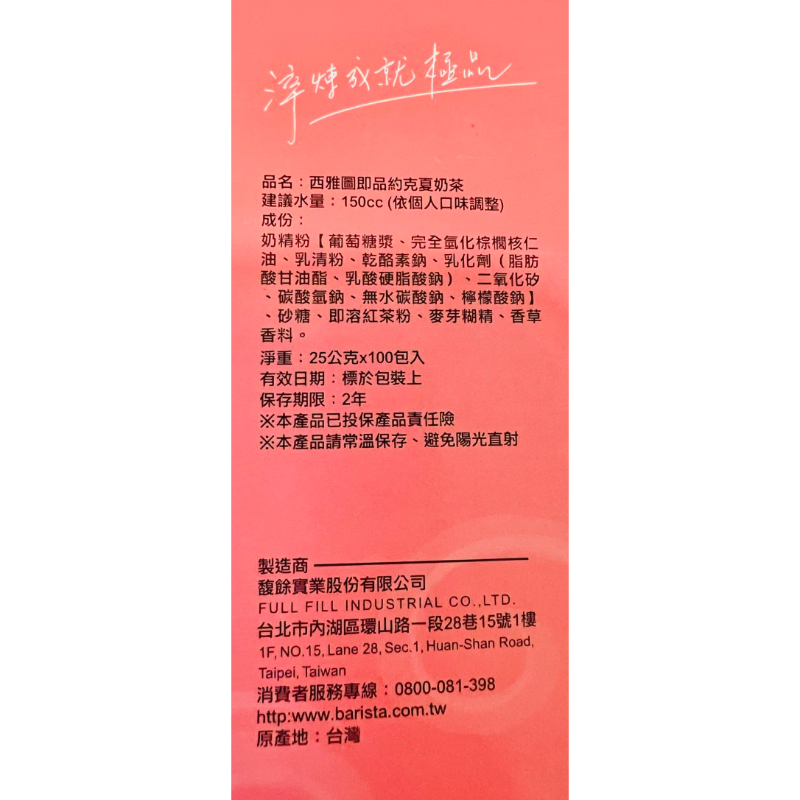 淬煉成就極品
品名：西雅圖即品約克夏奶茶
建議水量：150cc (依個人口味調整)
成份：
奶精粉【葡萄糖漿、完全氫化棕櫚核仁
油、乳清粉、乾酪素鈉、乳化劑（脂肪
酸甘油酯、乳酸硬脂酸鈉）、二氧化矽
、碳酸氫鈉、無水碳酸鈉、檸檬酸鈉】
、砂糖、即溶紅茶粉、麥芽糊精、香草
香料。
淨重：25公克x100包入
有效日期：標於包裝上
保存期限：2年
※本產品已投保產品責任險
※本產品請常溫保存、避免陽光直射
製造商
馥餘實業股份有限公司
FULL FILL INDUSTRIAL CO.,LTD.
台北市內湖區環山路一段28巷15號1樓
1F, NO.15, Lane 28, Sec.1, Huan-Shan Road,
Taipei, Taiwan
消費者服務專線：0800-081-398
http:www.barista.com.tw
原產地：台灣